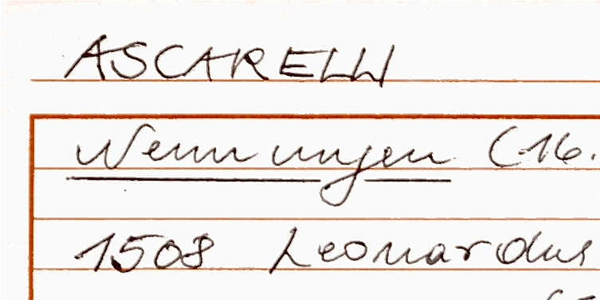 ASCARELLI
Nennungen (16.
1508 Leonardus